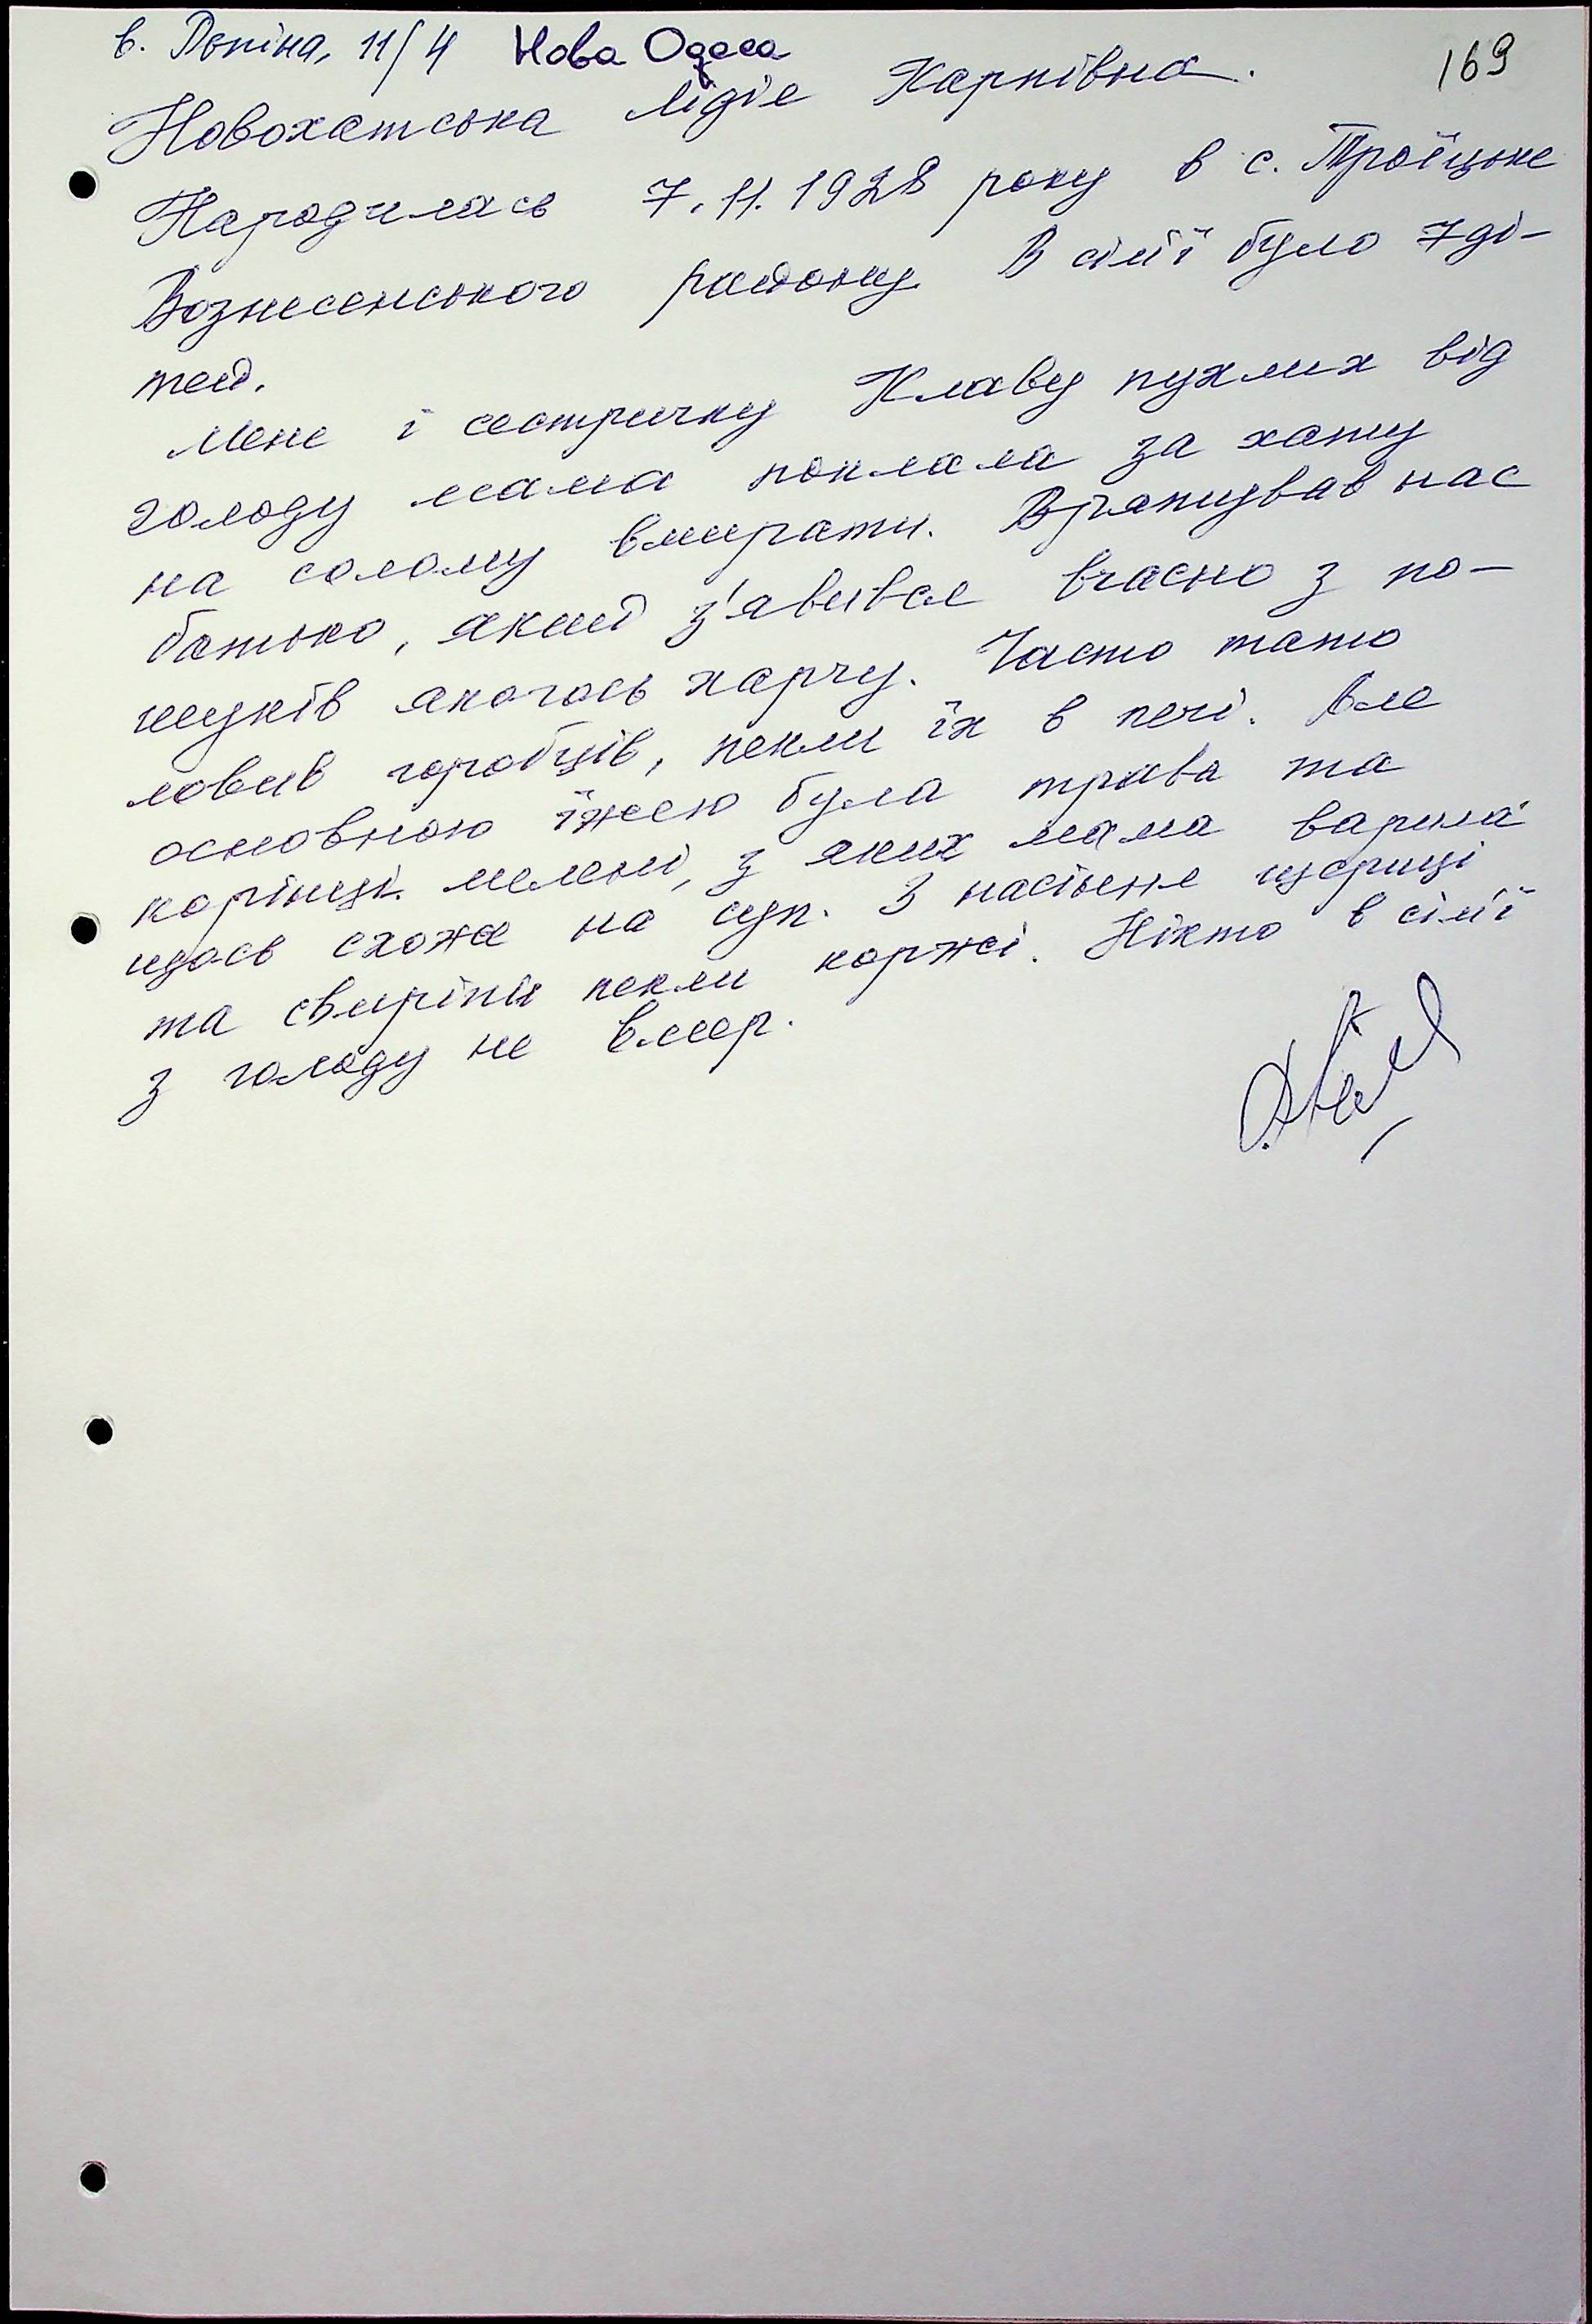 в. Рєпіна, 11/4 Нова Одеса
169
Новохатська Лідія Карпівна.
Народилась 7.11.1928 року в с. Троїцьке
Вознесенського району. В сім'ї було 7 ді-
тей.
Мене і сестричку Клаву пухлих від
голоду мама поклала за хату
на солому вмирати. Врятував нас
батько, який з'явився вчасно з по-
шуків якогось харчу. Часто тато
ловив горобців, пекли їх в печі. Але
основною їжею була трава та
корінці мелені, з яких мама варила
щось схоже на суп. З насіння щериці
та свиріпи пекли коржі. Ніхто в сім'ї
з голоду не вмер.